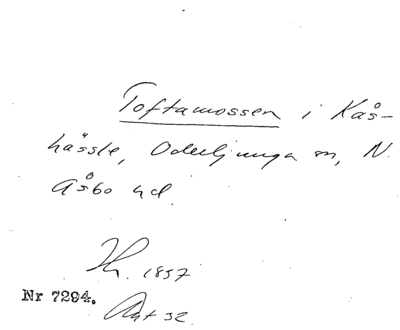 Toftamossen i Kås-
hässle, Oderljunga sn, N.
Åsbo hd.
1857
Nr 7294.
Ant 52